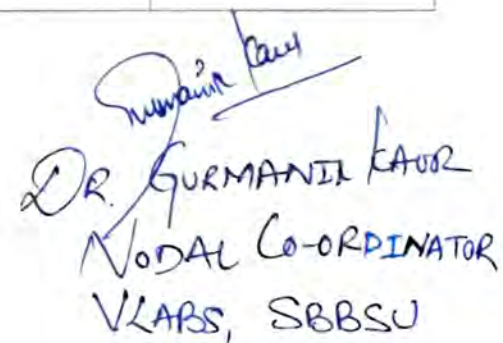 Gurmanik Kaur
DR. GURMANIK KAUR
NODAL CO-ORDINATOR
VLABS, SBBSU